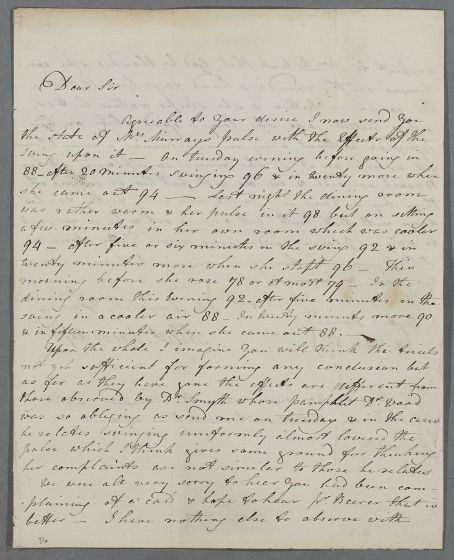 Dear Sir
Agreable to Your desire I now send you
the state of Mrs Murrays pulse with the Effects of the
swing upon it — On tuesday evening before going in
88 - after 20 minutes swinging 96 & in twenty more when
she came out 94 — Last night the dining room
was rather warm & her pulse in it 98 but on sitting
a few minutes in her own room which was cooler
94 - after five or six minutes in the swing 92 & in
twenty minutes more when she stopt 96 - This
morning before she rose 78 or at most 79 - In the
dining room this evening 92 - after five minutes in the
swing in a cooler air 88 - In twenty minuts more 90
& in fifteen minutes when she came out 88. -
Upon the whole I imagine You will think the trials
not yet sufficient for forming any conclusion but
as far as they have gone the effects are different from
those observed by Dr Smyth whose pamphlet Dr Wood
was so obliging as send me on tuesday & in the cases
he relates swinging uniformly almost lowered the
pulse which I think gives some ground for thinking
her complaints are not similar to those he relates
We were all very sorry to hear You had been com-
plaining of a cold & hope to hear pr Bearer that is
better - I have nothing else to observe with
36